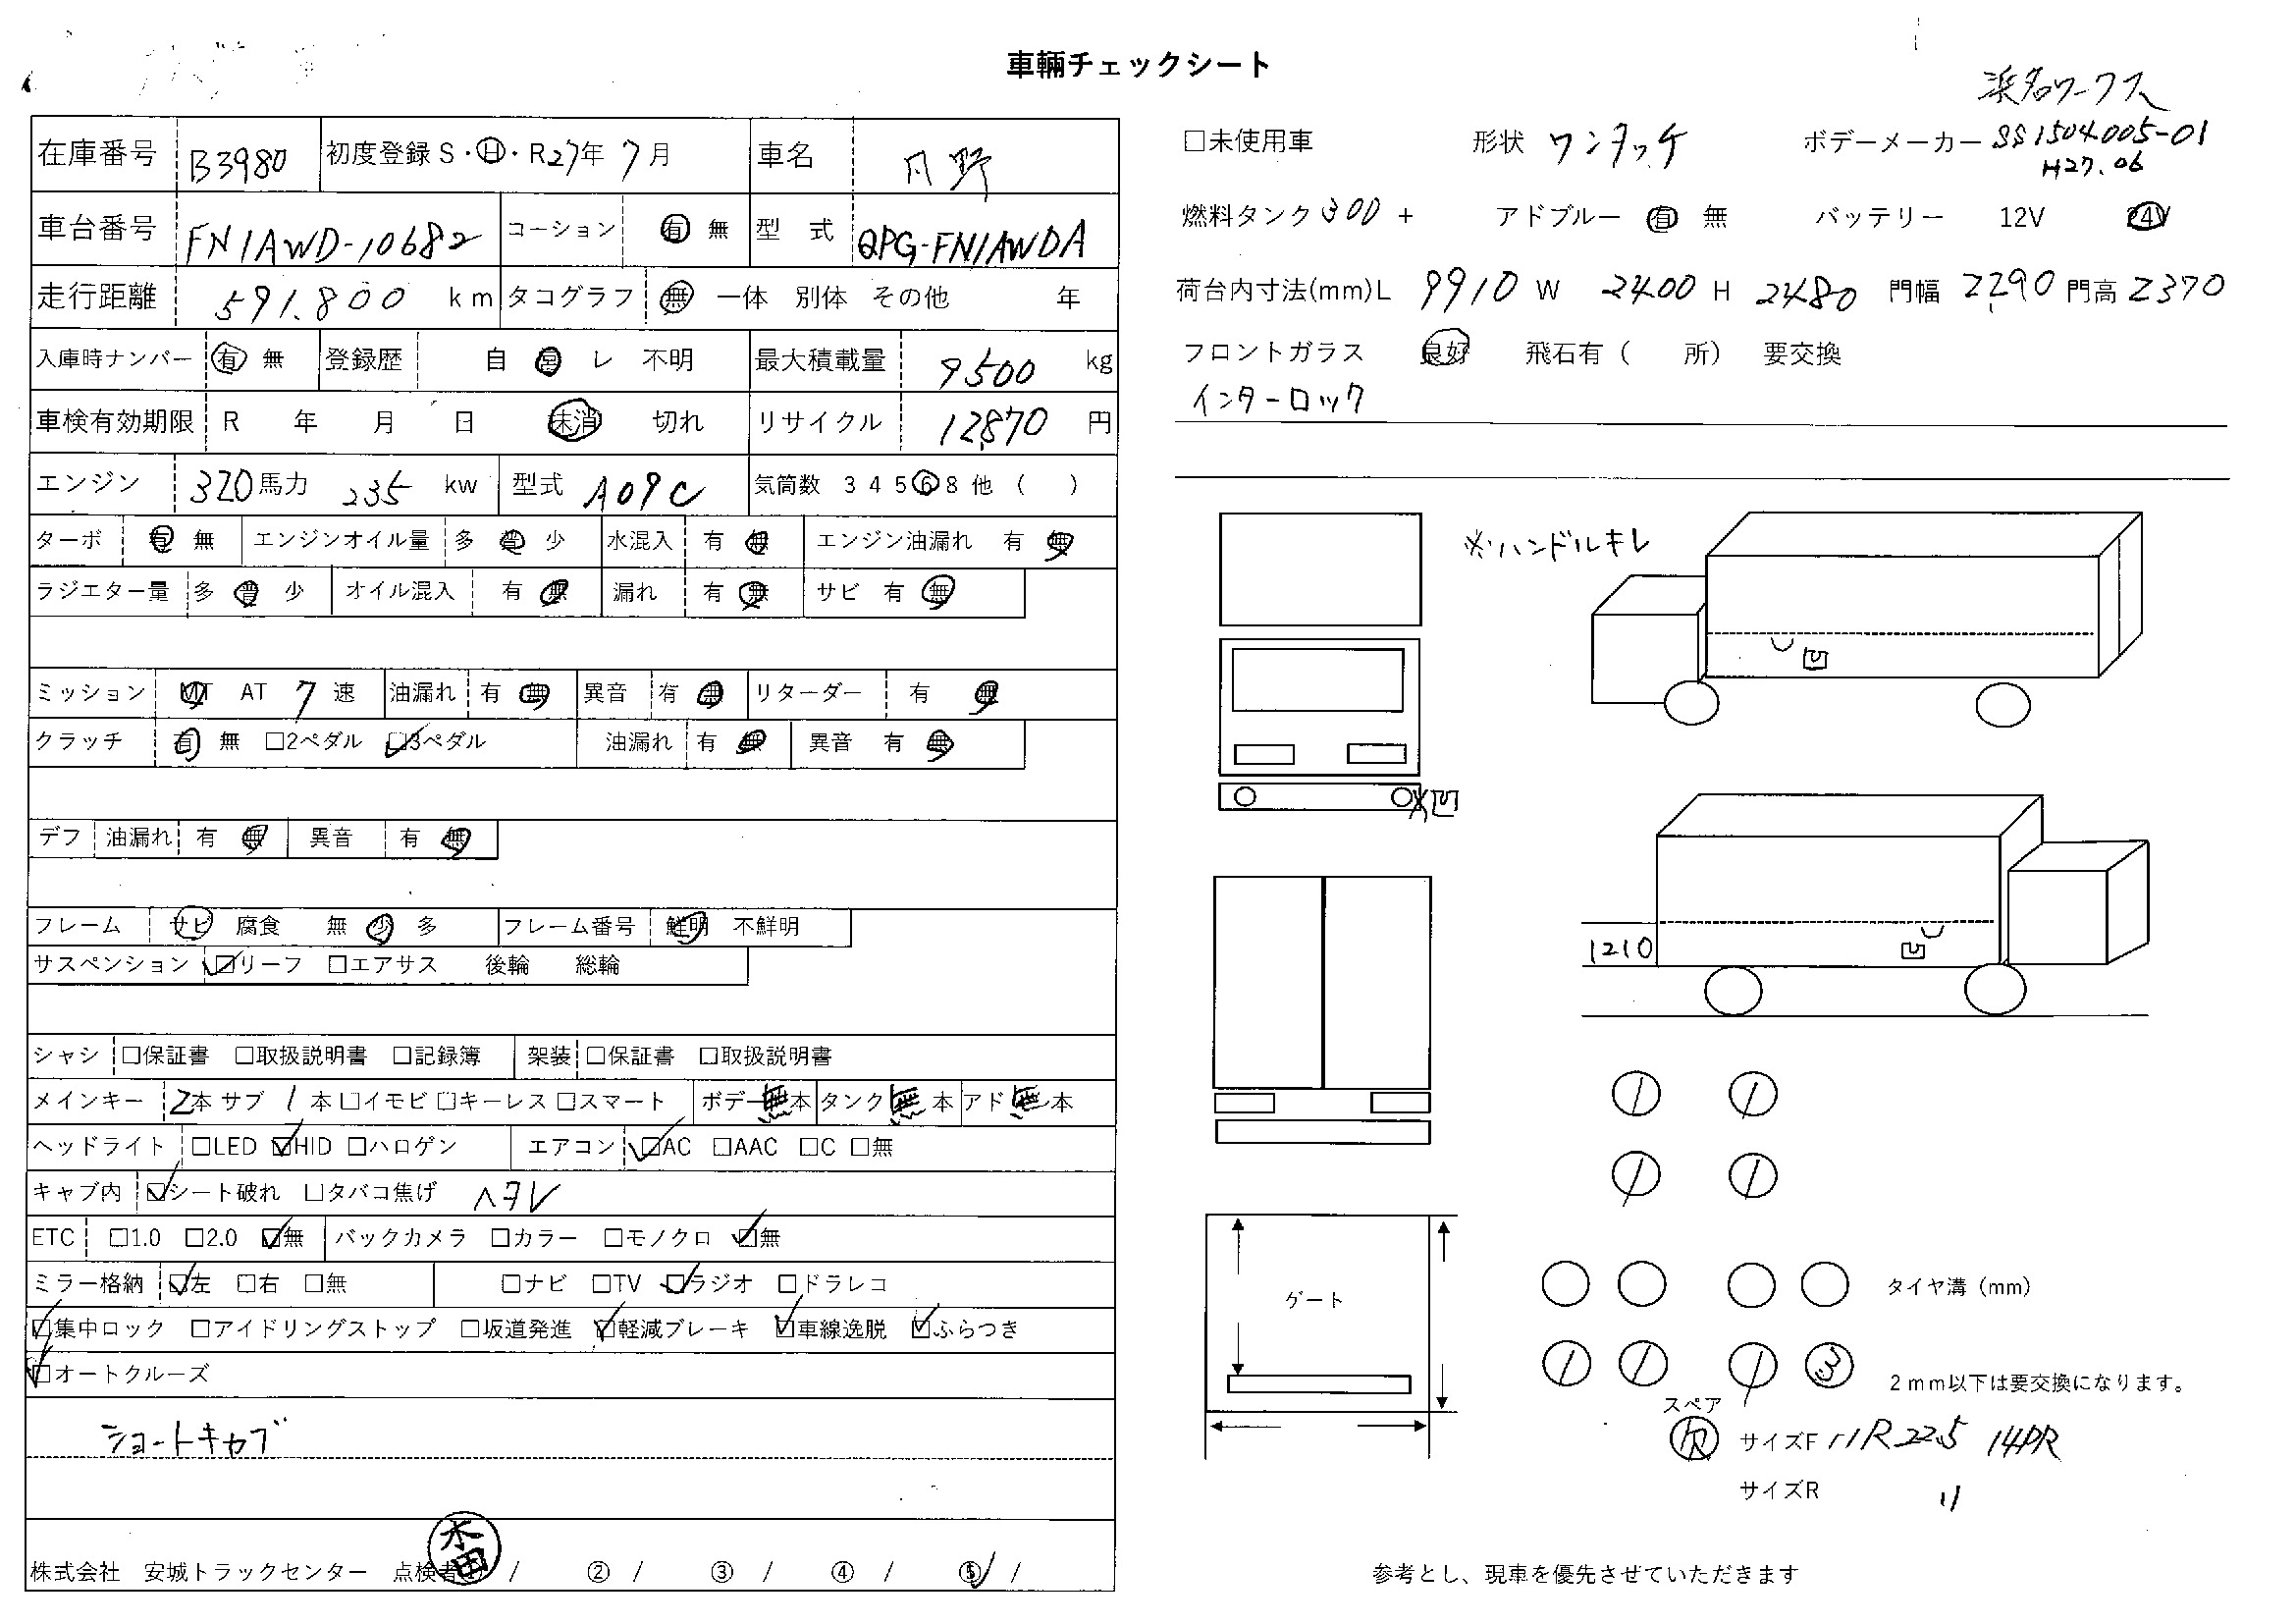 車輌チェックシート
在庫番号 B3980 初度登録 S・H・R 27年 7月 車名 日野
車台番号 FN1AWD-10682 コーション 有 無 型 式 QPG-FN1AWDA
走行距離 591.800 km タコグラフ 無 一体 別体 その他 年
入庫時ナンバー 有 無 登録歴 自 営 レ 不明 最大積載量 9500 kg
車検有効期限 R 年 月 日 抹消 切れ リサイクル 12870 円
エンジン 320馬力 235 kw 型式 A09C 気筒数 3 4 5 6 8 他 ( )
ターボ 有 無 エンジンオイル量 多 普 少 水混入 有 無 エンジン油漏れ 有 無
ラジエター量 多 普 少 オイル混入 有 無 漏れ 有 無 サビ 有 無
ミッション MT AT 7 速 油漏れ 有 無 異音 有 無 リターダー 有 無
クラッチ 有 無 □2ペダル □3ペダル 油漏れ 有 無 異音 有 無
デフ 油漏れ 有 無 異音 有 無
フレーム サビ 腐食 無 少 多 フレーム番号 鮮明 不鮮明
サスペンション □リーフ □エアサス 後輪 総輪
シャシ □保証書 □取扱説明書 □記録簿 架装 □保証書 □取扱説明書
メインキー 2本 サブ 1 本 □イモビ □キーレス □スマート ボデー無本 タンク無 本 アド無 本
ヘッドライト □LED □HID □ハロゲン エアコン □AC □AAC □C □無
キャブ内 □シート破れ □タバコ焦げ ヘタレ
ETC □1.0 □2.0 □無 バックカメラ □カラー □モノクロ □無
ミラー格納 □左 □右 □無 □ナビ □TV □ラジオ □ドラレコ
□集中ロック □アイドリングストップ □坂道発進 □軽減ブレーキ □車線逸脱 □ふらつき
□オートクルーズ
ショートキャブ
株式会社 安城トラックセンター 点検者 / ② / ③ / ④ / ⑤ /
浜名ワークス
□未使用車 形状 ワンタッチ ボデーメーカー SS1504005-01
H27.06
燃料タンク 300 + アドブルー 有 無 バッテリー 12V 24V
荷台内寸法(mm)L 9910 W 2400 H 2480 門幅 2290 門高 2370
フロントガラス 良好 飛石有 ( 所) 要交換
インターロック
※ハンドルキレ
凹
凹
1210
凹
ゲート
タイヤ溝 (mm)
3
2mm以下は要交換になります。
スペア
欠 サイズF 11R22.5 14PR
サイズR 〃
参考とし、現車を優先させていただきます